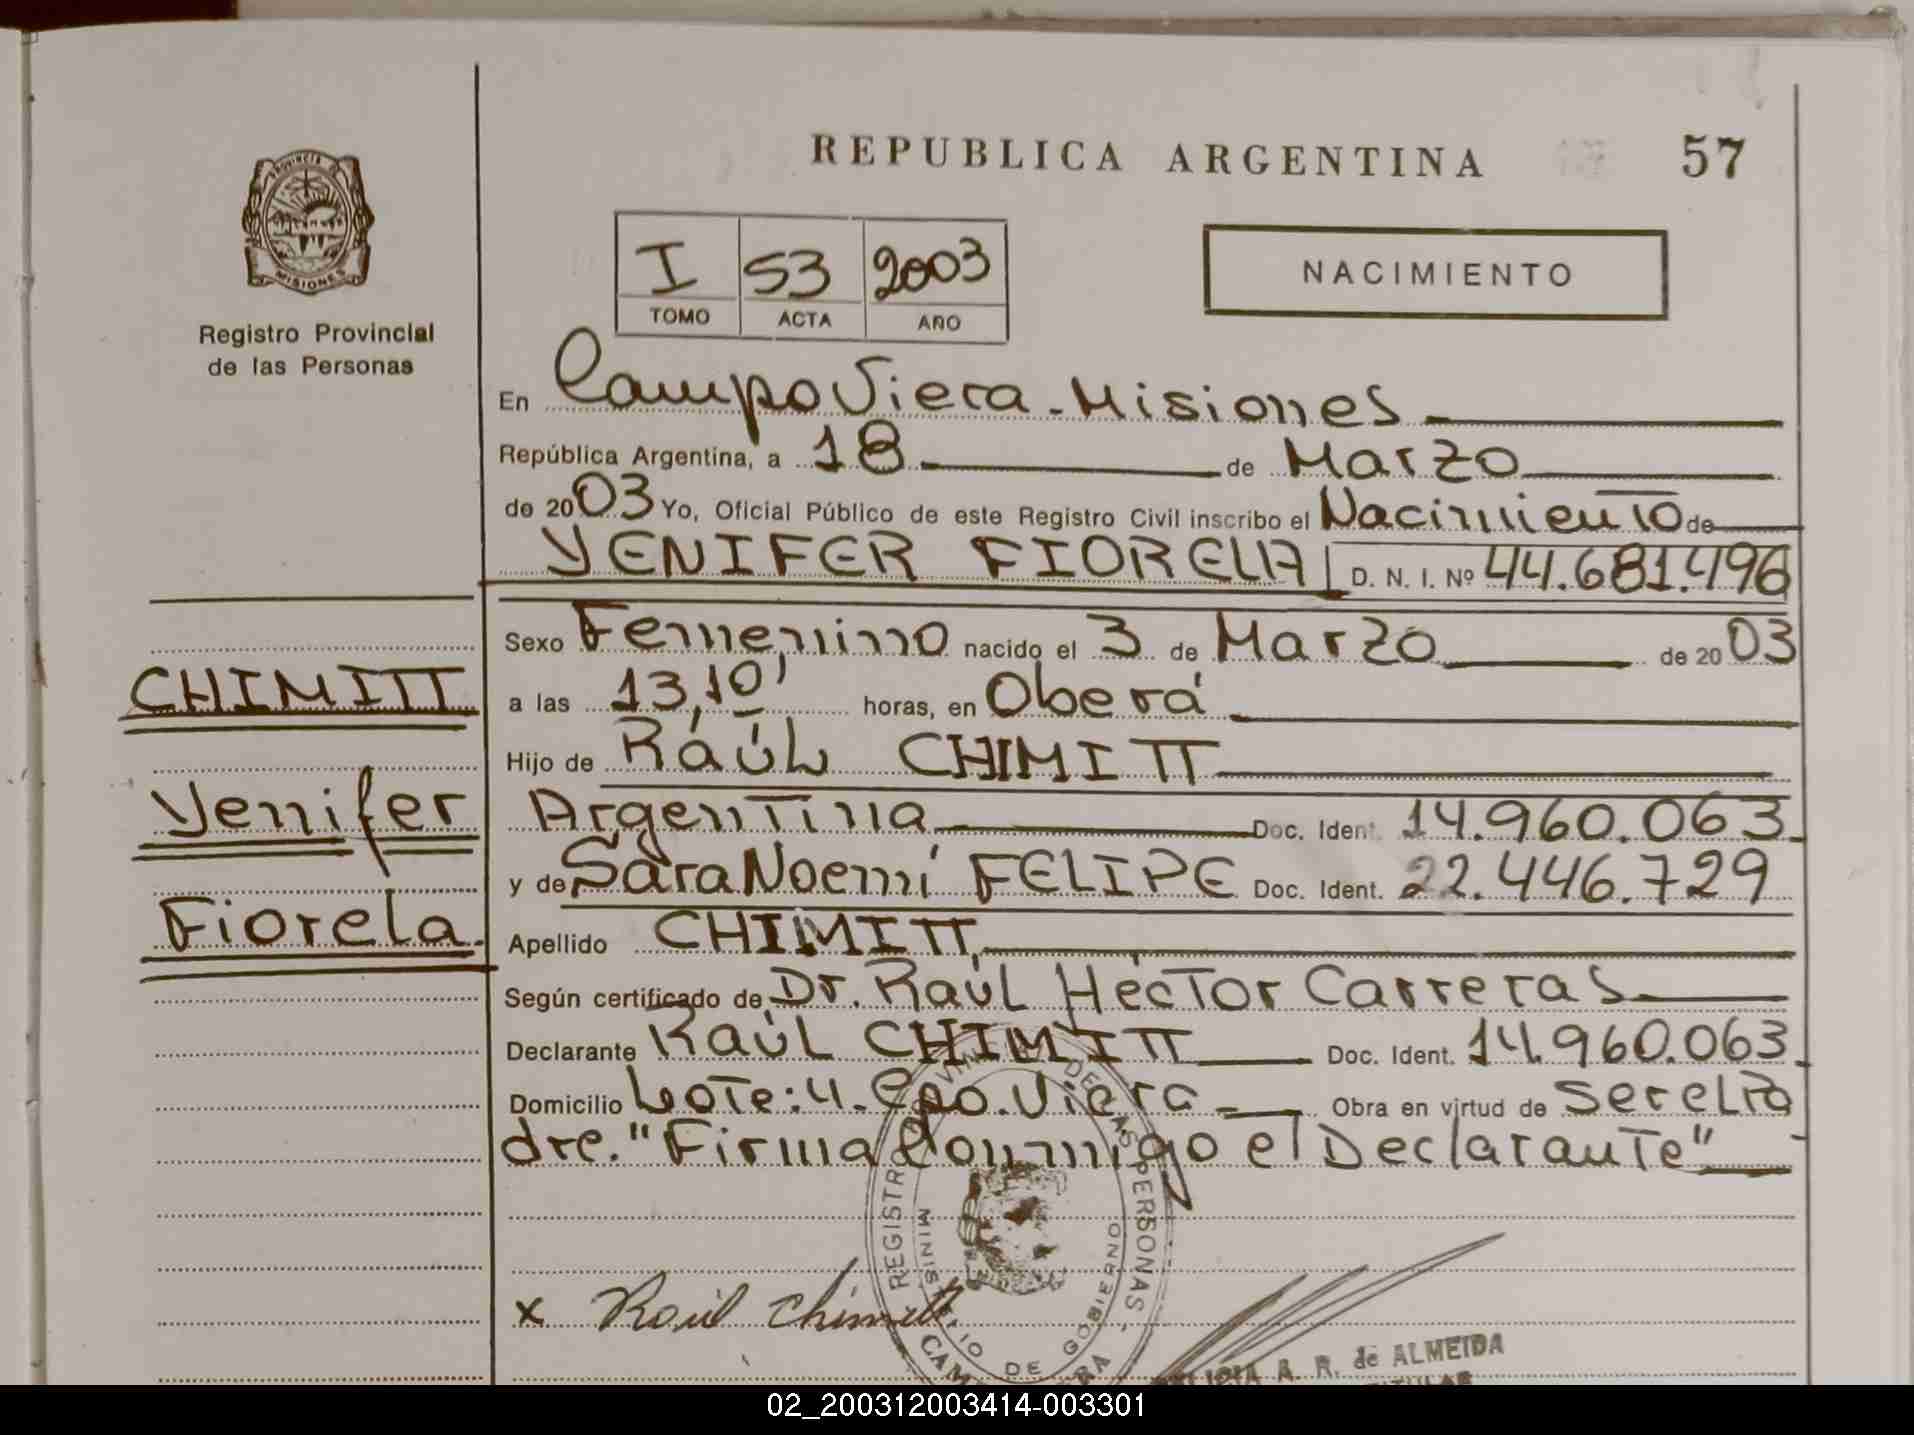 REPUBLICA ARGENTINA
57
PROVINCIA DE
MISIONES
Registro Provincial
de las Personas
I 53 2003
TOMO ACTA AÑO
NACIMIENTO
En Campo Viera - Misiones
República Argentina, a 18 de Marzo
de 2003 Yo, Oficial Público de este Registro Civil inscribo el Nacimiento de
YENIFER FIORELA D. N. I. Nº 44.681.496
Sexo Femenino nacido el 3 de Marzo de 2003
a las 13,10' horas, en Oberá
Hijo de Raúl CHIMITT
Argentina Doc. Ident. 14.960.063
y de Sara Noemí FELIPE Doc. Ident. 22.446.729
Apellido CHIMITT
Según certificado de Dr. Raúl Héctor Carreras
Declarante Raúl CHIMITT Doc. Ident. 14.960.063
Domicilio Lote: 4. Cpo. Viera Obra en virtud de ser el Pa
dre. "Firma Conmigo el Declarante"
CHIMITT
Yenifer
Fiorela
x Raúl Chimitt
REGISTRO PROVINCIAL DE LAS PERSONAS
MINISTERIO DE GOBIERNO
A. R. de ALMEIDA
02_200312003414-003301